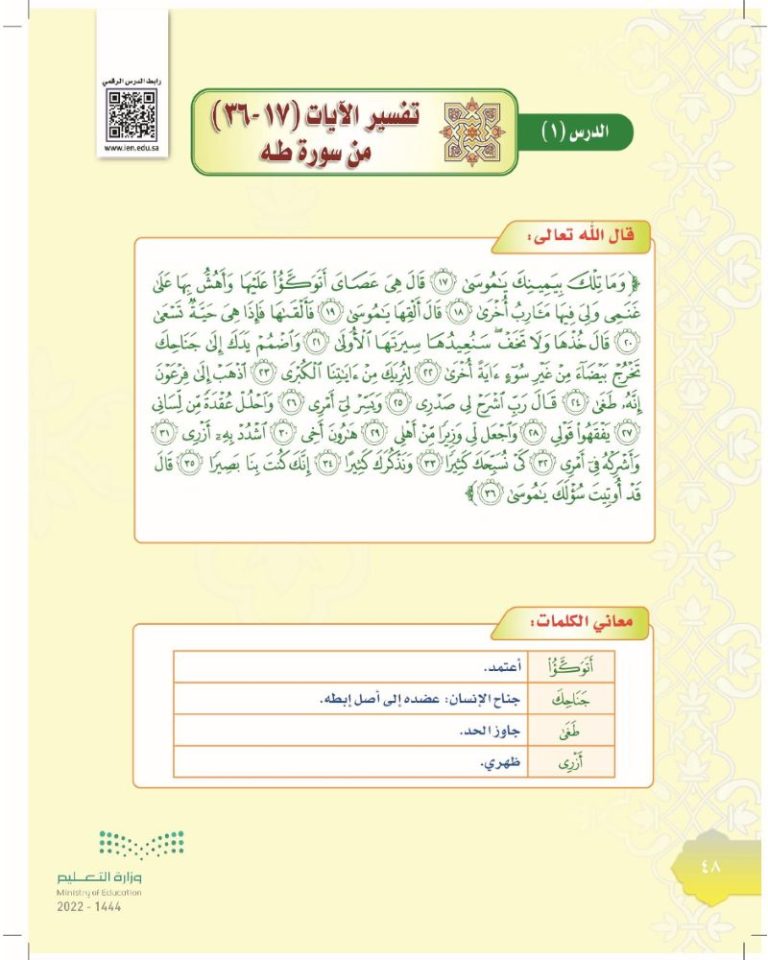 رابط الدرس الرقمي
www.ien.edu.sa
الدرس (١)
تفسير الآيات (١٧-٣٦)
من سورة طه
قال الله تعالى:
﴿ وَمَا تِلْكَ بِيَمِينِكَ يَٰمُوسَىٰ ١٧ قَالَ هِىَ عَصَاىَ أَتَوَكَّؤُا۟ عَلَيْهَا وَأَهُشُّ بِهَا عَلَىٰ
غَنَمِى وَلِىَ فِيهَا مَـَٔارِبُ أُخْرَىٰ ١٨ قَالَ أَلْقِهَا يَٰمُوسَىٰ ١٩ فَأَلْقَىٰهَا فَإِذَا هِىَ حَيَّةٌ تَسْعَىٰ
٢٠ قَالَ خُذْهَا وَلَا تَخَفْ ۖ سَنُعِيدُهَا سِيرَتَهَا ٱلْأُولَىٰ ٢١ وَٱضْمُمْ يَدَكَ إِلَىٰ جَنَاحِكَ
تَخْرُجْ بَيْضَآءَ مِنْ غَيْرِ سُوٓءٍ ءَايَةً أُخْرَىٰ ٢٢ لِنُرِيَكَ مِنْ ءَايَٰتِنَا ٱلْكُبْرَى ٢٣ ٱذْهَبْ إِلَىٰ فِرْعَوْنَ
إِنَّهُۥ طَغَىٰ ٢٤ قَالَ رَبِّ ٱشْرَحْ لِى صَدْرِى ٢٥ وَيَسِّرْ لِىٓ أَمْرِى ٢٦ وَٱحْلُلْ عُقْدَةً مِّن لِّسَانِى
٢٧ يَفْقَهُوا۟ قَوْلِى ٢٨ وَٱجْعَل لِّى وَزِيرًا مِّنْ أَهْلِى ٢٩ هَٰرُونَ أَخِى ٣٠ ٱشْدُدْ بِهِۦٓ أَزْرِى ٣١
وَأَشْرِكْهُ فِىٓ أَمْرِى ٣٢ كَىْ نُسَبِّحَكَ كَثِيرًا ٣٣ وَنَذْكُرَكَ كَثِيرًا ٣٤ إِنَّكَ كُنتَ بِنَا بَصِيرًا ٣٥ قَالَ
قَدْ أُوتِيتَ سُؤْلَكَ يَٰمُوسَىٰ ٣٦ ﴾
معاني الكلمات:
أَتَوَكَّؤُا۟ أعتمد.
جَنَاحِكَ جناح الإنسان: عضده إلى أصل إبطه.
طَغَىٰ جاوز الحد.
أَزْرِى ظهري.
وزارة التعليم
Ministry of Education
2022 - 1444
٤٨